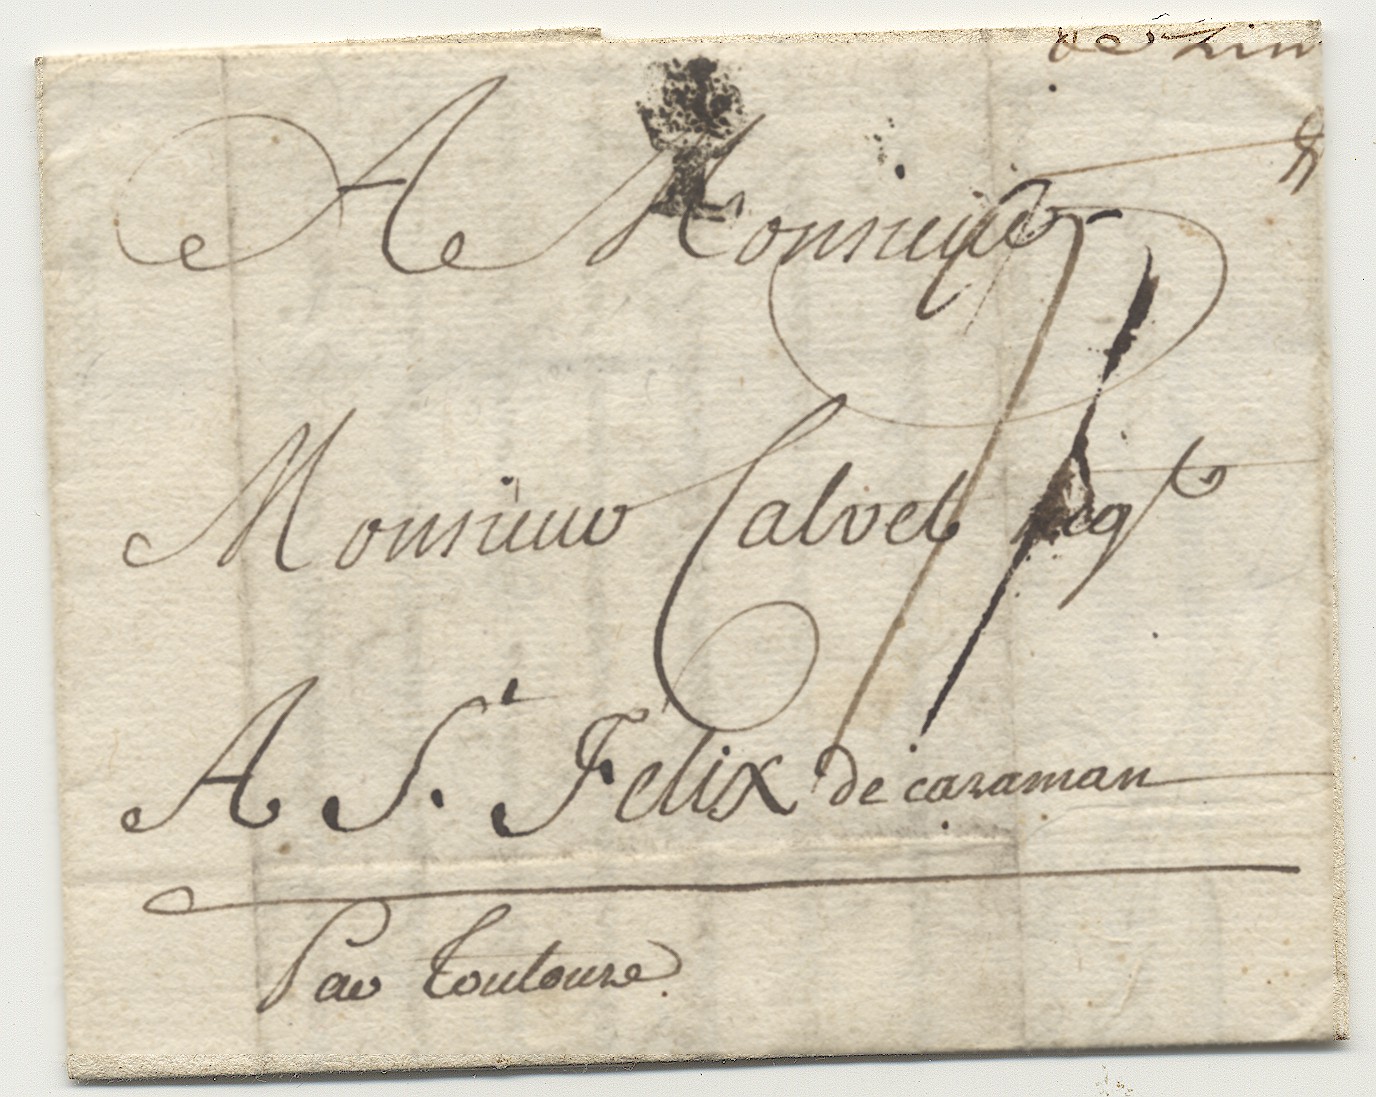 A Monsieur
Monsieur Calvet Neg.t
A S.t Felix de caraman
Par Toulouse